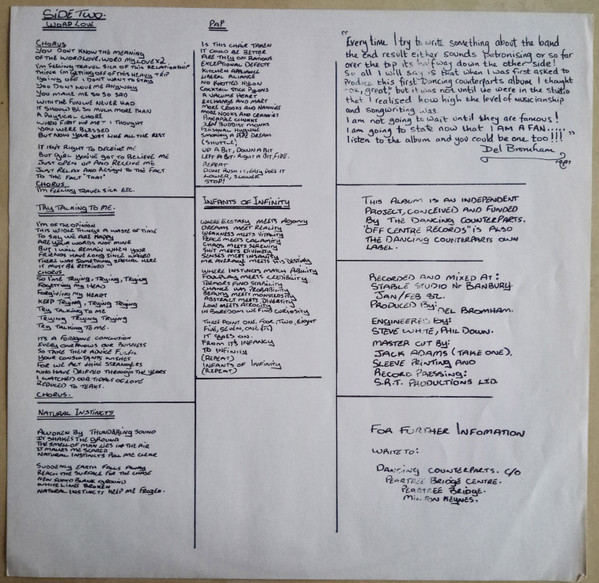 SIDE TWO.
WORD LOVE
CHORUS
YOU DON'T KNOW THE MEANING
OF THE WORD LOVE, WORD, MY LOVE X2.
I'M FEELING TRAVEL SICK OF THIS RELATIONSHIP
THINK I'M GETTING OFF OF THIS HEAVY TRIP
GOING OFF I DON'T WANT TO STAY
YOU DON'T MOVE ME ANYWAY
YOU MAKE ME SO SO SAD
WITH THE FUN WE NEVER HAD
IT SHOULD BE SO MUCH MORE THAN
A PHYSICAL CHORE
WHEN FIRST WE MET - I THOUGHT
YOU WERE BLESSED
BUT NOW YOUR JUST LIKE ALL THE REST
IT ISN'T RIGHT TO DECEIVE ME
BUT GIRL YOU'VE GOT TO BELIEVE ME
JUST OPEN UP AND RECEIVE ME
JUST RELAX AND RESIGN TO THE FACT
TO THE FACT THAT
CHORUS
I'M FEELING TRAVEL SICK ETC.
TRY TALKING TO ME.
I'M OF THE OPINION
THIS WHOLE THING'S A WASTE OF TIME
TO SAY WE ARE HAPPY
ARE YOUR WORDS NOT MINE
BUT I WILL REMAIN WHEN YOUR
FRIENDS HAVE LONG SINCE WALKED
THERE WAS SOMETHING SPECIAL HERE
IT MUST BE RETAINED
CHORUS
SO TIME TRYING, TRYING, TRYING
FORGETTING MY HEAD
FORGIVING MY HEART
KEEP TRYING, TRYING TRYING
TRY TALKING TO ME
TRYING TRYING TRYING
TRY TALKING TO ME.
IT'S A FOREGONE CONCLUSION
EVERY ONE KNOWS OUR BUSINESS
SO TAKE THEIR ADVICE FULFIL
YOUR CONSULTANTS WISHES
FOR WE ACT LIKE STRANGERS
WHO HAVE DRIFTED THROUGH THE YEARS
I WATCHED OUR TIDES OF LOVE
REDUCED TO TEARS.
CHORUS.
NATURAL INSTINCTS
AWOKEN BY THUNDERING SOUND
IT SHAKES THE GROUND
THE SMELL OF MAN LIES IN THE AIR
IT MAKES ME SCARED
NATURAL INSTINCTS PULL ME CLEAR
SUDDENLY EARTH FALLS AWAY
REACH THE SURFACE FOR THE CHASE
WHITE LINES BROKEN
NATURAL INSTINCTS KEEP ME
PAP
IS THIS CHAIR TAKEN
IT COULD BE BETTER
ARE THEY ON RATIONS
EXCEPTIONAL DEFECT
KITCHEN APPLIANCE
LIBERAL ALLIANCE
NO KNOTTED NYLON
COCKTAIL STICK POISONS
A VACUUMS HEART
EXCHANGE AND MART
MORE CROOKS AND NANNIES
MORE NOOKS AND CRANNIES
PINEAPPLE CHUNKS
ZEN BUDDIST MONKS
PERSONAL HYGIENE
SMOKING A PIPE DREAM
(SHUTTLE)
UP A BIT, DOWN A BIT
LEFT A BIT, RIGHT A BIT, FIRE.
REPEAT
DONT RUSH IT, EASY DOES IT
LOWER, SLOWER
STOP!
INFANTS OF INFINITY
WHERE ECSTASY MEETS AGONY
DREAMS MEET REALITY
WEAKNESS MEETS VITALITY
PEACE MEETS CALAMITY
CHAOS MEETS SERENITY
SENSES MEET INSANITY
MR AVERAGE MEETS HIS DESTINY
WHERE INSTINCTS MATCH ABILITY
FOUL PLAY MEETS CREDIBILITY
TREMORS FIND STABILITY
CHANCE AND PROBABILITY
BEAUTY MEETS MONSTROSITY
ABSTRACT MEETS DIVERSITY
LOW MEETS ATROCITY
IN BOREDOM WE FIND CURIOSITY
THEN POINT ONE FOR TWO, EIGHT
FIVE, SEVEN, ONE, ETC
IT GOES ON.
FROM ITS INFANCY
TO INFINITY
(REPEAT)
INFANTS OF INFINITY
(REPEAT)
"Every time I try to write something about the band
the end result either sounds patronising or so far
over the top its halfway down the other side!
So all I will say is that when I was first asked to
Produce this first Dancing Counterparts album, I thought
"ok, great," but it was not until we were in the studio
that I realised how high the level of musicianship
and songwriting was.
I am not going to wait until they are famous!
I am going to state now that I AM A FAN.....
listen to the album and you could be one too!!!"
Del Bromham
THIS ALBUM IS AN INDEPENDENT
PROJECT, CONCEIVED AND FUNDED
BY THE DANCING COUNTERPARTS.
'OFF CENTRE RECORDS' IS ALSO
THE DANCING COUNTERPARTS OWN
LABEL.
RECORDED AND MIXED AT:
STABLE STUDIO NR BANBURY.
JAN/FEB 82.
PRODUCED BY:
DEL BROMHAM.
ENGINEERED BY:
STEVE WHITE, PHIL DOWN.
MASTER CUT BY:
JACK ADAMS (TAKE ONE).
SLEEVE PRINTING AND
RECORD PRESSING:
S.R.T. PRODUCTIONS LTD.
FOR FURTHER INFOMATION
WRITE TO:
DANCING COUNTERPARTS. C/O
PEARTREE BRIDGE CENTRE.
PEARTREE BRIDGE.
MILTON KEYNES.